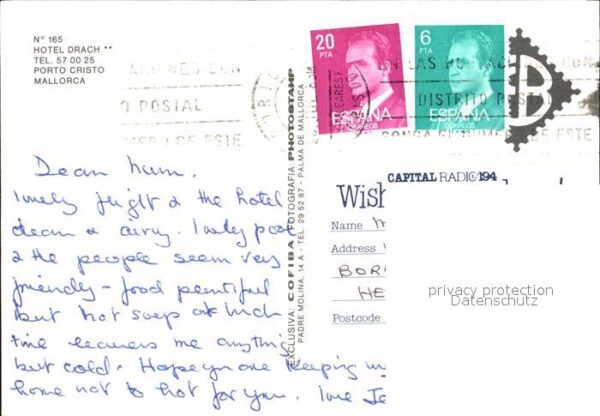 Nº 165
HOTEL DRACH **
TEL. 57 00 25
PORTO CRISTO
MALLORCA
20
PTA
ESPAÑA
CORREOS
6
PTA
ESPAÑA
CORREOS
CON
POSTAL
DE ESTE
EN LAS CON
DISTRITO POSTAL
PONGA EL NUMERO DE ESTE
B
EXCLUSIVA: COFIBA, FOTOGRAFIA PHOTOSTAMP
PADRE MOLINA, 14 A - TEL. 29 52 87 - PALMA DE MALLORCA
Dear Mum.
lovely flight & the hotel
clean & airy. Lovely pool
& the people seem very
friendly - food plentiful
but hot soup at lunch
time leaves me anything
but cold. Hope you are keeping
home not to hot for you. love Je
CAPITAL RADIO 194
Wish
Name M
Address
BOR
HE
Postcode
privacy protection
Datenschutz